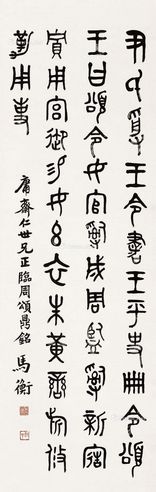 尹氏受王令書王乎史冊令頌
王曰頌令女官𤔲成周監𤔲新造
貯用宮御易女玄衣朱黃䜌旂攸
勒用事
庸齋仁世兄正臨周頌鼎銘 馬衡